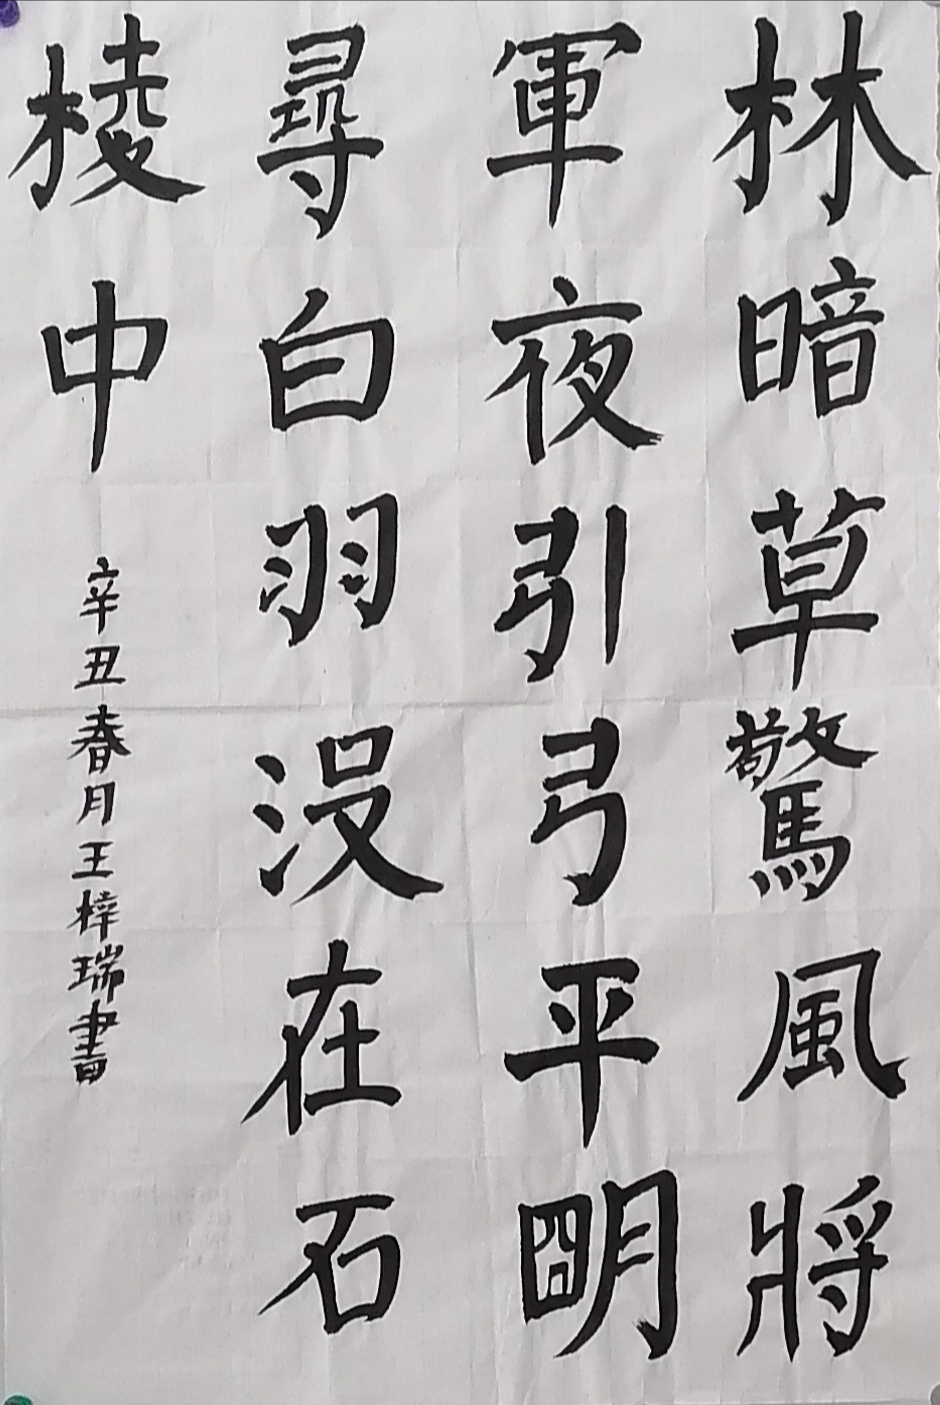 林暗草驚風將
軍夜引弓平明
尋白羽沒在石
棱中
辛丑春月王梓瑞書